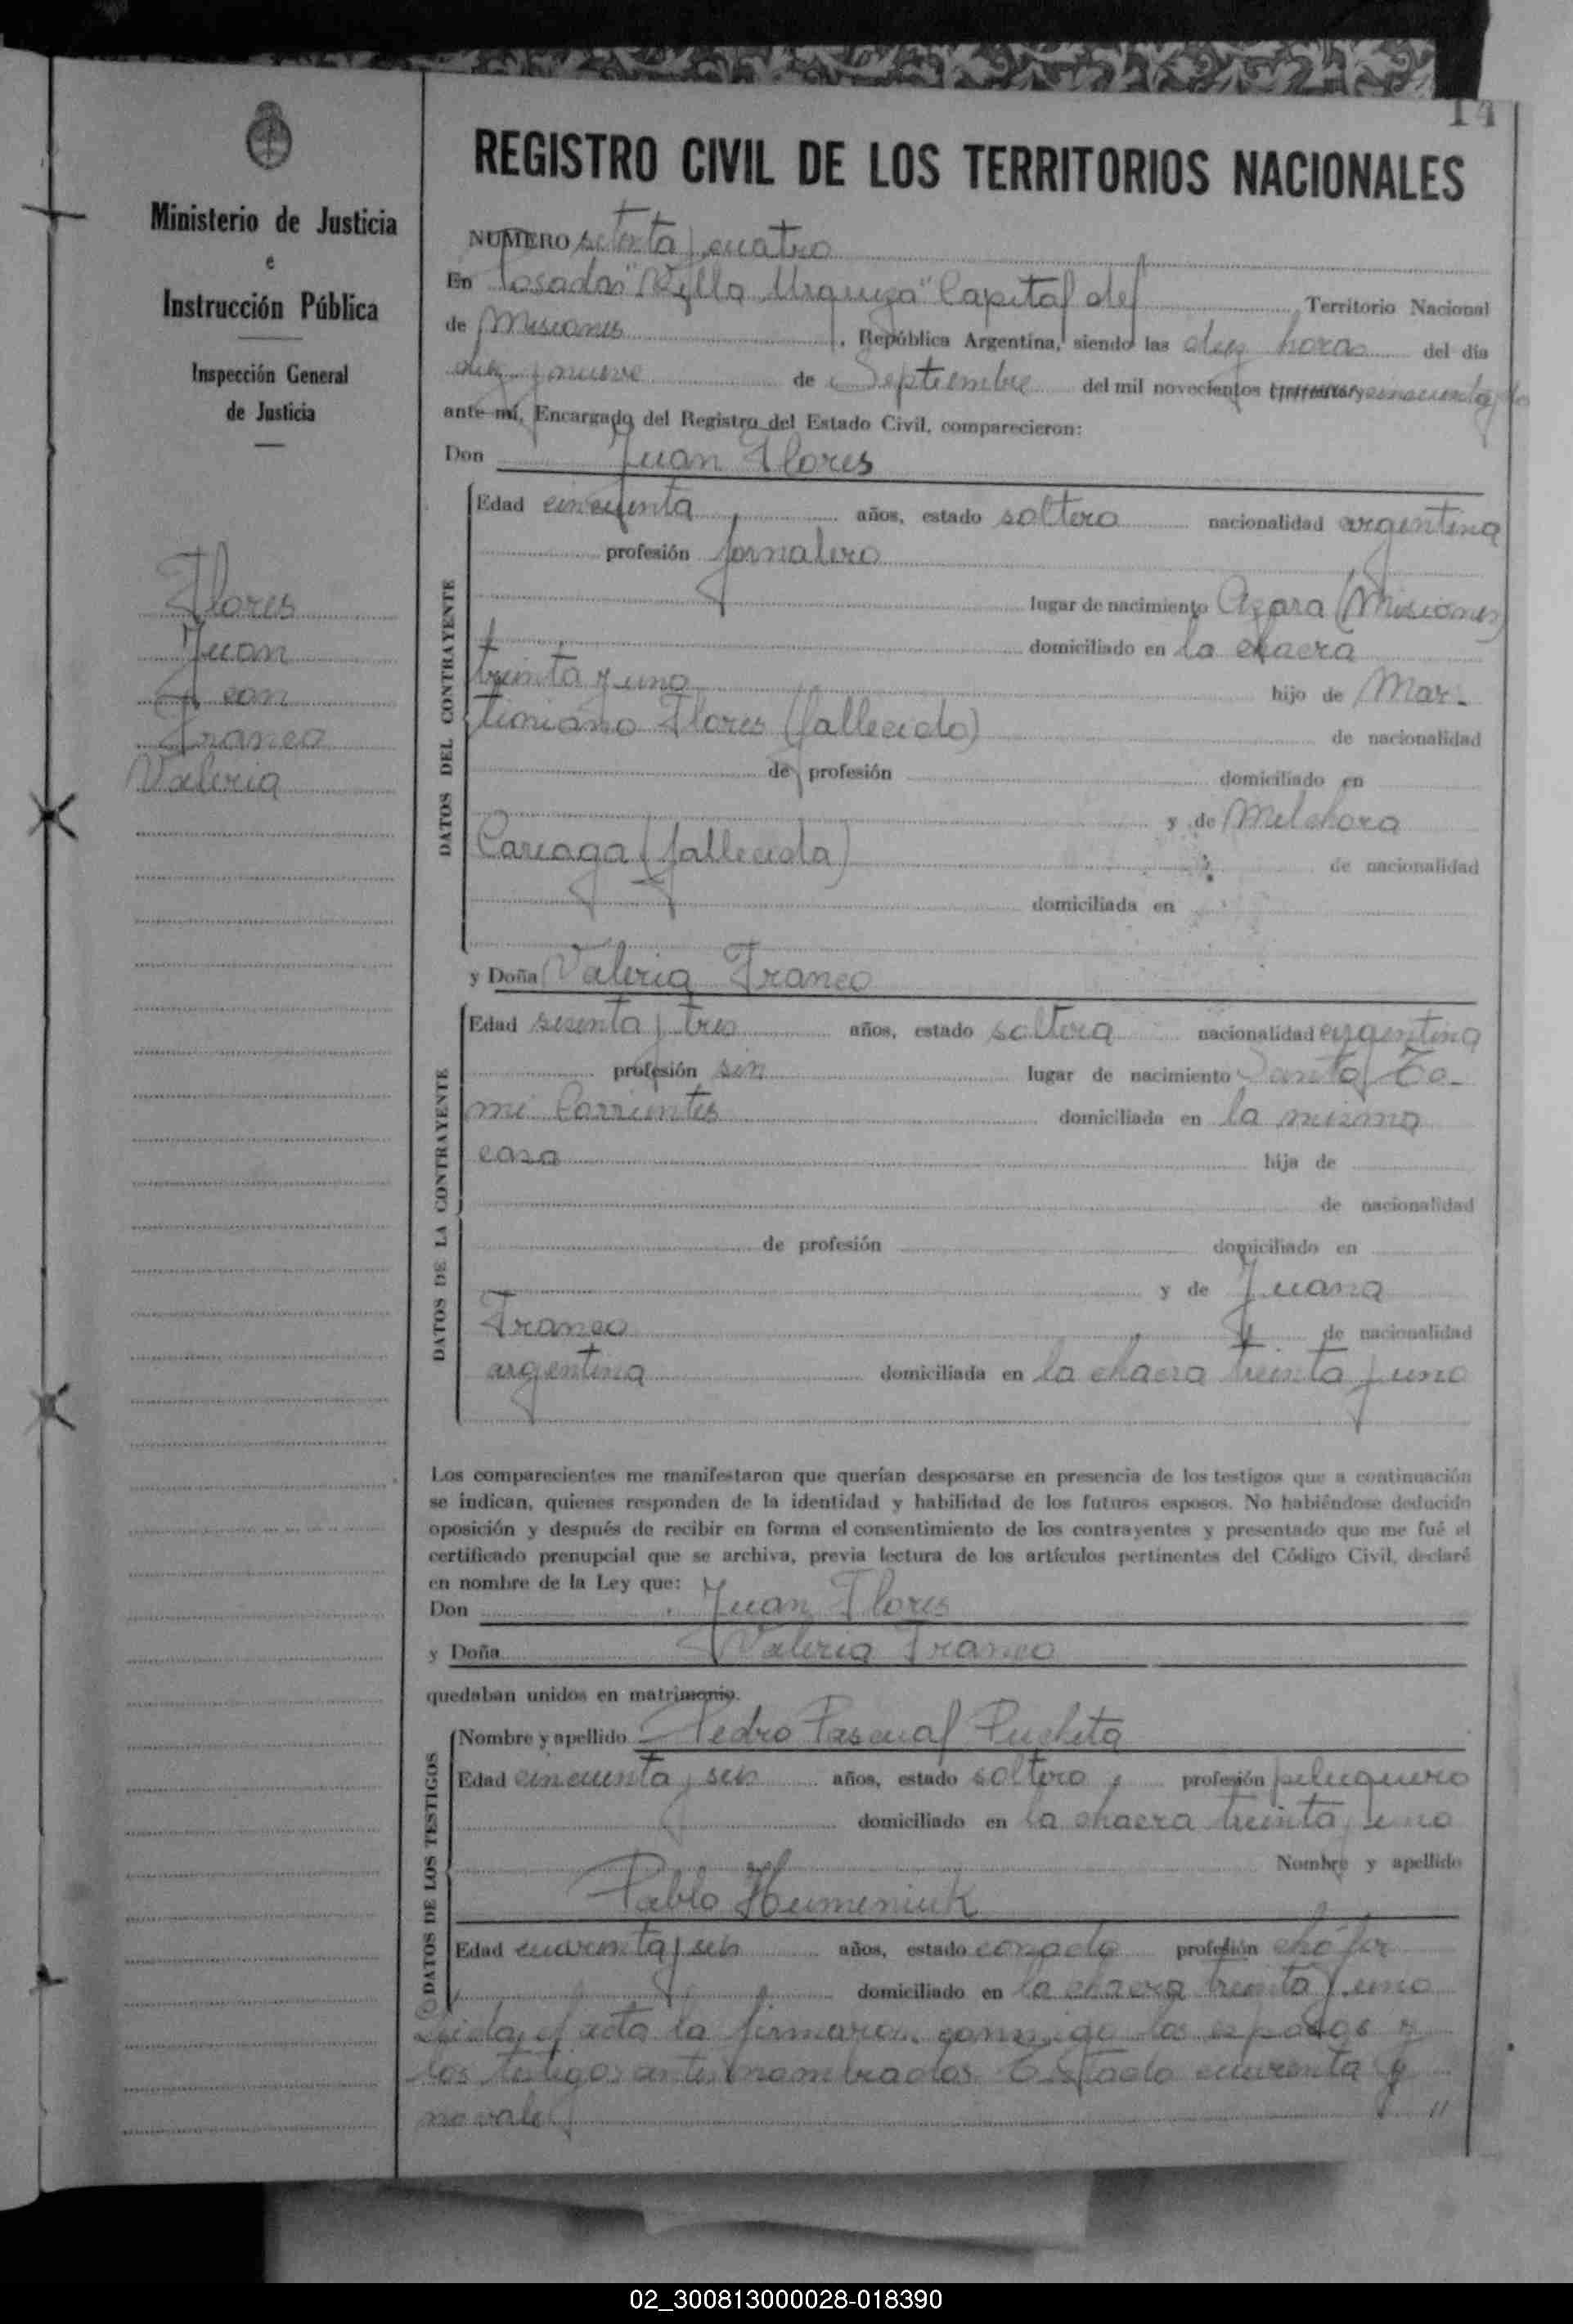 14
Ministerio de Justicia
e
Instrucción Pública
Inspección General
de Justicia
Flores
Juan
con
Franco
Valeria
REGISTRO CIVIL DE LOS TERRITORIOS NACIONALES
NUMERO setenta y cuatro
En Posadas "Villa Urquiza" Capital del Territorio Nacional
de Misiones, República Argentina, siendo las diez horas del día
diez y nueve de Septiembre del mil novecientos cincuenta y dos
ante mí, Encargado del Registro del Estado Civil, comparecieron:
Don Juan Flores
DATOS DEL CONTRAYENTE
Edad cincuenta años, estado soltero nacionalidad argentina
profesión jornalero
lugar de nacimiento Azara (Misiones)
domiciliado en la chacra
treinta y uno hijo de Mar-
Flores (fallecido) de nacionalidad
de profesión domiciliado en
y de Melchora
Cariaga (fallecida) de nacionalidad
domiciliada en
y Doña Valeria Franco
DATOS DE LA CONTRAYENTE
Edad sesenta y tres años, estado soltera nacionalidad argentina
profesión sin lugar de nacimiento Santo To-
mé Corrientes domiciliada en la misma
casa hija de
de nacionalidad
de profesión domiciliado en
y de Juana
Franco de nacionalidad
argentina domiciliada en la chacra treinta y uno
Los comparecientes me manifestaron que querían desposarse en presencia de los testigos que a continuación
se indican, quienes responden de la identidad y habilidad de los futuros esposos. No habiéndose deducido
oposición y después de recibir en forma el consentimiento de los contrayentes y presentado que me fué el
certificado prenupcial que se archiva, previa lectura de los artículos pertinentes del Código Civil, declaré
en nombre de la Ley que:
Don Juan Flores
y Doña Valeria Franco
quedaban unidos en matrimonio.
DATOS DE LOS TESTIGOS
Nombre y apellido Pedro Pascual Pucheta
Edad cincuenta y seis años, estado soltero, profesión peluquero
domiciliado en la chacra treinta y uno
Nombre y apellido
Pablo Humeniuk
Edad cuarenta y seis años, estado casado profesión chófer
domiciliado en la chacra treinta y uno
Leida el acta la firmaron conmigo los esposos y
los testigos antes nombrados. Testado cuarenta y
no vale
02_300813000028-018390